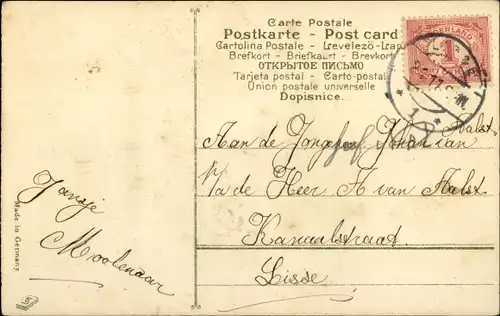 Carte Postale
Postkarte - Post card
Cartolina Postale - Levelező-Lap
Brefkort - Briefkaart - Brevkort
ОТКРЫТОЕ ПИСЬМО
Tarjeta postal - Carto-postal
Union postale universelle
Dopisnice.
NEDERLAND
1
Aan de Jongeheer Johan van Aalst
p/a de Heer A van Aalst
Kanaalstraat
Lisse
Jansje
Moolenaar
Made in Germany